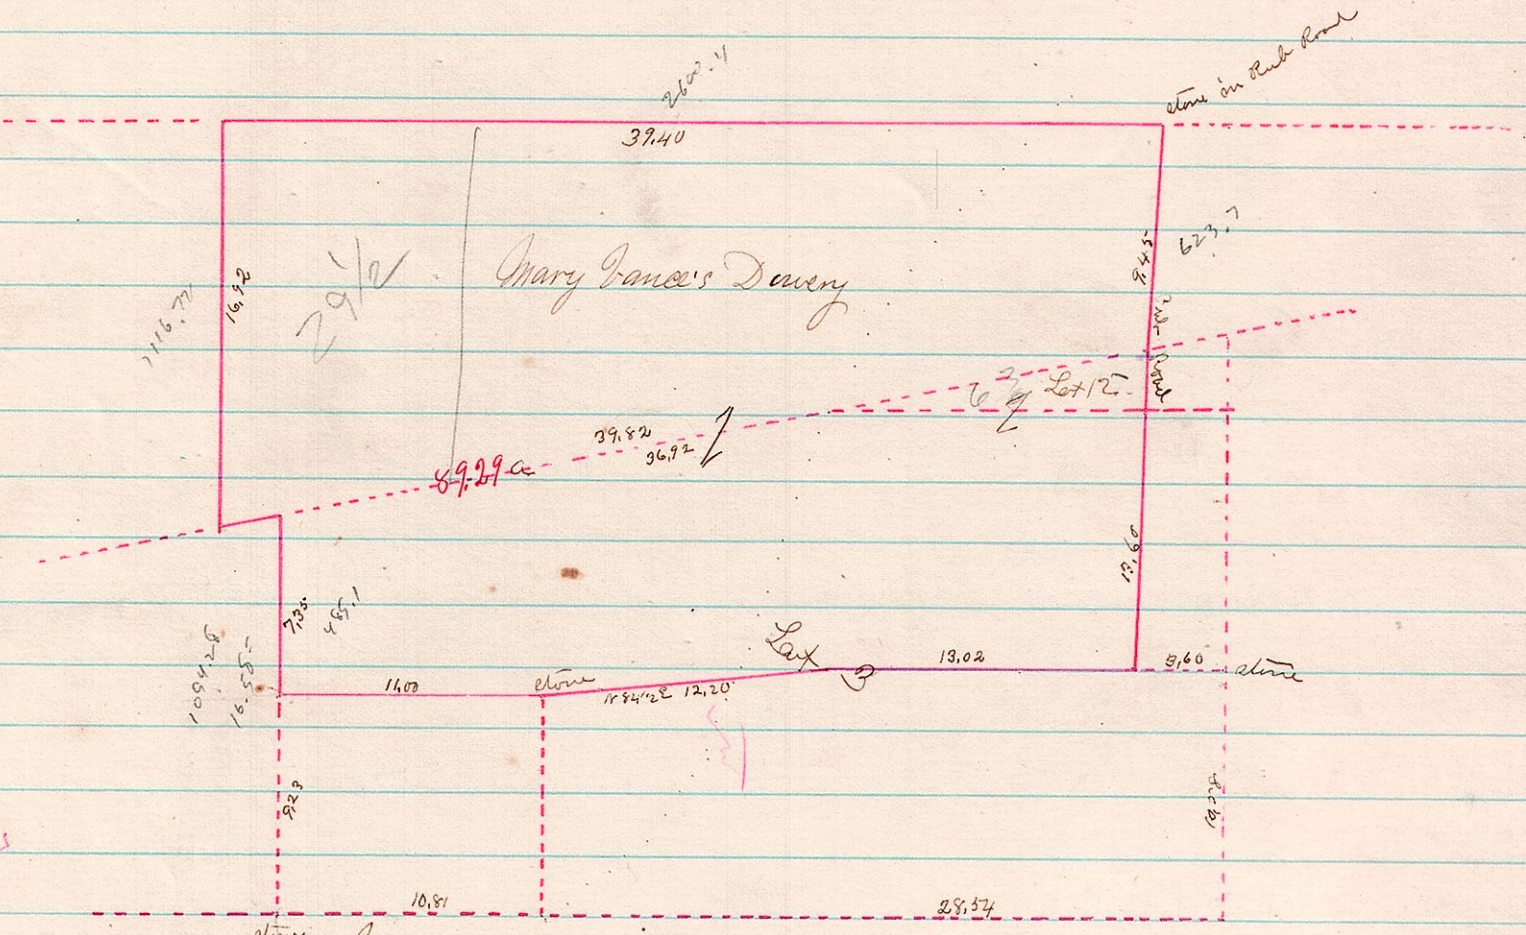 2600.4
stone in Rub Road
39.40
Mary Vance's Dowery
16,92
1116.72
29 1/2
9,45
623.7
Road
Lot 12
39,82
36,92
1
89.29 a
13,60
7,35
485.1
1094.28
16.585
Lot 3
13,02
3,60
stone
11,00
stone
N 84 1/2 E 12,20
9,23
10,81
28,54